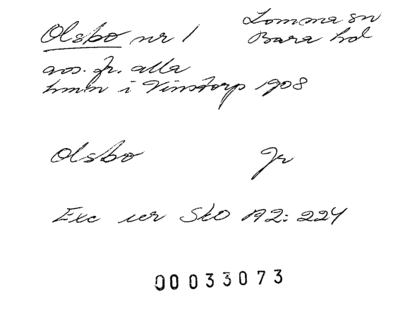 Olsbo nr 1
Lomma sn
Bara hd
avs. fr. alla
hmn i Vinstorp 1908
Olsbo Jr
Exc ur SkO A2: 224
00033073